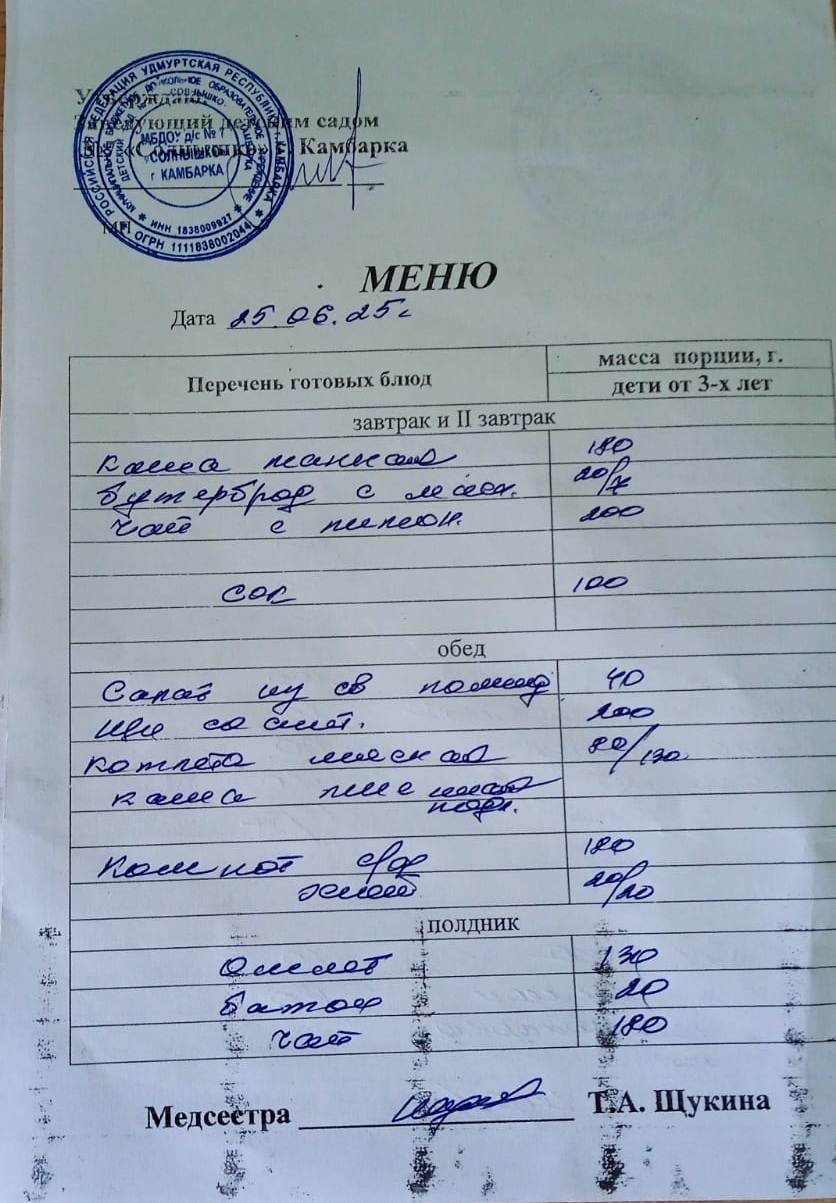 Утверждаю:
Заведующий детским садом
№ 7 «Солнышко» г. Камбарка
МП
РОССИЙСКАЯ ФЕДЕРАЦИЯ УДМУРТСКАЯ РЕСПУБЛИКА г. КАМБАРКА
МУНИЦИПАЛЬНОЕ БЮДЖЕТНОЕ ДОШКОЛЬНОЕ ОБРАЗОВАТЕЛЬНОЕ УЧРЕЖДЕНИЕ
МБДОУ д/с № 7
«СОЛНЫШКО»
г КАМБАРКА
ИНН 1838009927
ОГРН 1111838002044
МЕНЮ
Дата 25.06.25г
Перечень готовых блюд масса порции, г.
дети от 3-х лет
завтрак и II завтрак
Каша манная 180
бутерброд с масл. 20/7
Чай с лимон. 200
сок 100
обед
Салат из св помид 40
Щи со смет. 200
Котлета мясная 80/130
каша пшеничная
подл.
Компот с/ф 180
хлеб 20/20
полдник
Омлет 130
батон 20
Чай 180
Медсестра Т.А. Щукина